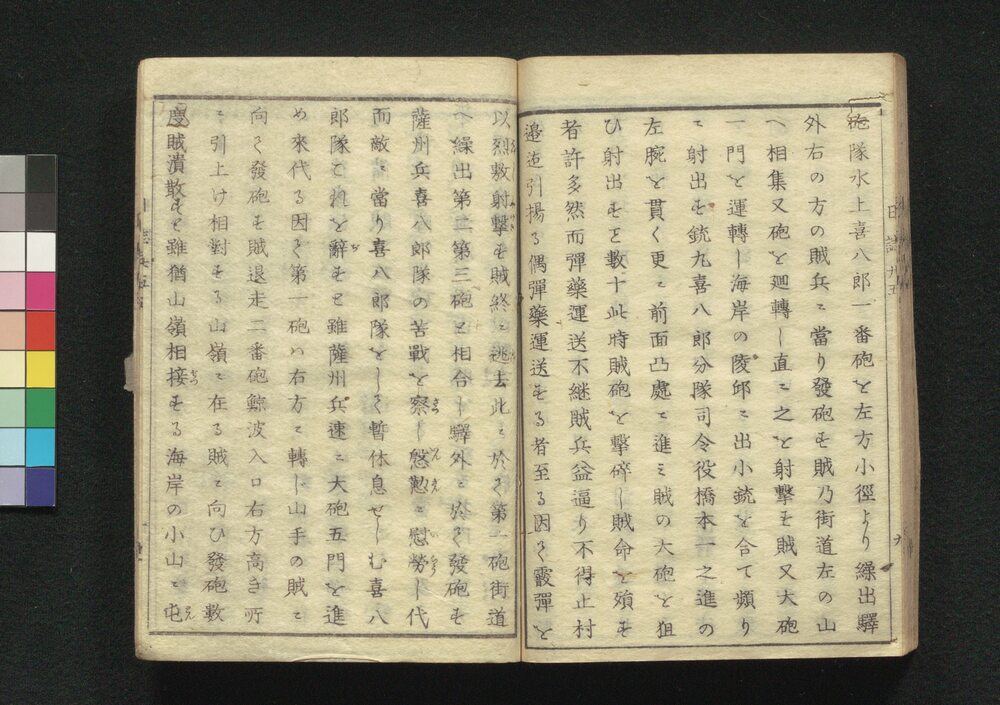 砲隊水上喜八郎一番砲を左方小徑より繰出驛
外右の方の賊兵に當り發砲も賊乃街道左の山
へ相集又砲を廻轉し直に之を射撃も賊又大砲
一門を運轉し海岸の陵邱に出小銃を合て頻り
に射出も銃丸喜八郎分隊司令役橋本一之進の
左腕を貫く更に前面凸處に進ミ賊の大砲を狙
ひ射出もを數十此時賊砲を撃碎し賊命を殞も
者許多然而彈藥運送不継賊兵益逼り不得止村
邉迄引揚る偶彈藥運送もる者至る因て霰彈を
以烈敷射撃も賊終に逃去此に於て第一砲街道
へ繰出第二第三砲を相合し驛外に於て發砲も
薩州兵喜八郎隊の苦戰を察し慇懃に慰勞し代
而敵に當り喜八郎隊をして暫休息せしむ喜八
郎隊これを辭もと雖薩州兵速に大砲五門を進
め來代る因て第一砲ハ右方に轉し山手の賊に
向て發砲も賊退走二番砲鯨波入口右方高き所
に引上け相對もる山嶺に在る賊に向ひ發砲數
度賊潰散もと雖猶山嶺相接もる海岸の小山に屯